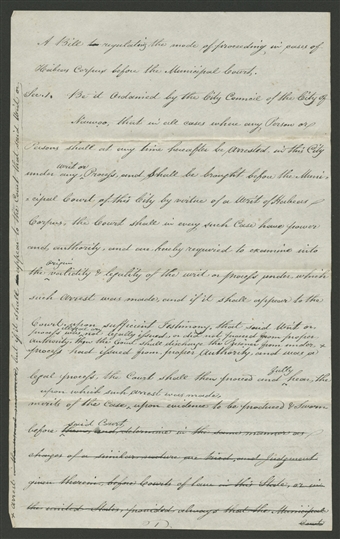 A Bill to regulating the mode of proceeding, in cases of
Habeus Corpus before the Municipal Court.
Sect. Be it Ordained by the City Council of the City of
Nauvoo, that in all cases where any Person or
Persons shall at any time hereafter be Arrested, in this City
writ or
under any Process, and shall be brought before the Muni-
cipal Court of this City by virtue of a Writ of Habeus
Corpus, the Court shall in every such Case have power
and authority, and are hereby required to examine into
origin
the validity & legality of the writ or process under which
such Arrest was made, and if it shall appear to the
Court, upon sufficient Testimony, that said Writ or
process was not legally issued, or did not proceed from proper
authority, then the Court shall discharge the Prisoner from under
process had issued from proper Authority, and was a
fully
legal process, the Court shall then proceed and hear, the
upon which such arrest was made,
merits of the Case, upon evidence to be produced & sworn
said Court,
before them, and determine in the same manner as
charges of a similar nature are tried, and judgement
given therein, before Courts of law in this State, or in
the united States, provided always that the Municipal
but if it shall appear to the Court that said Writ or